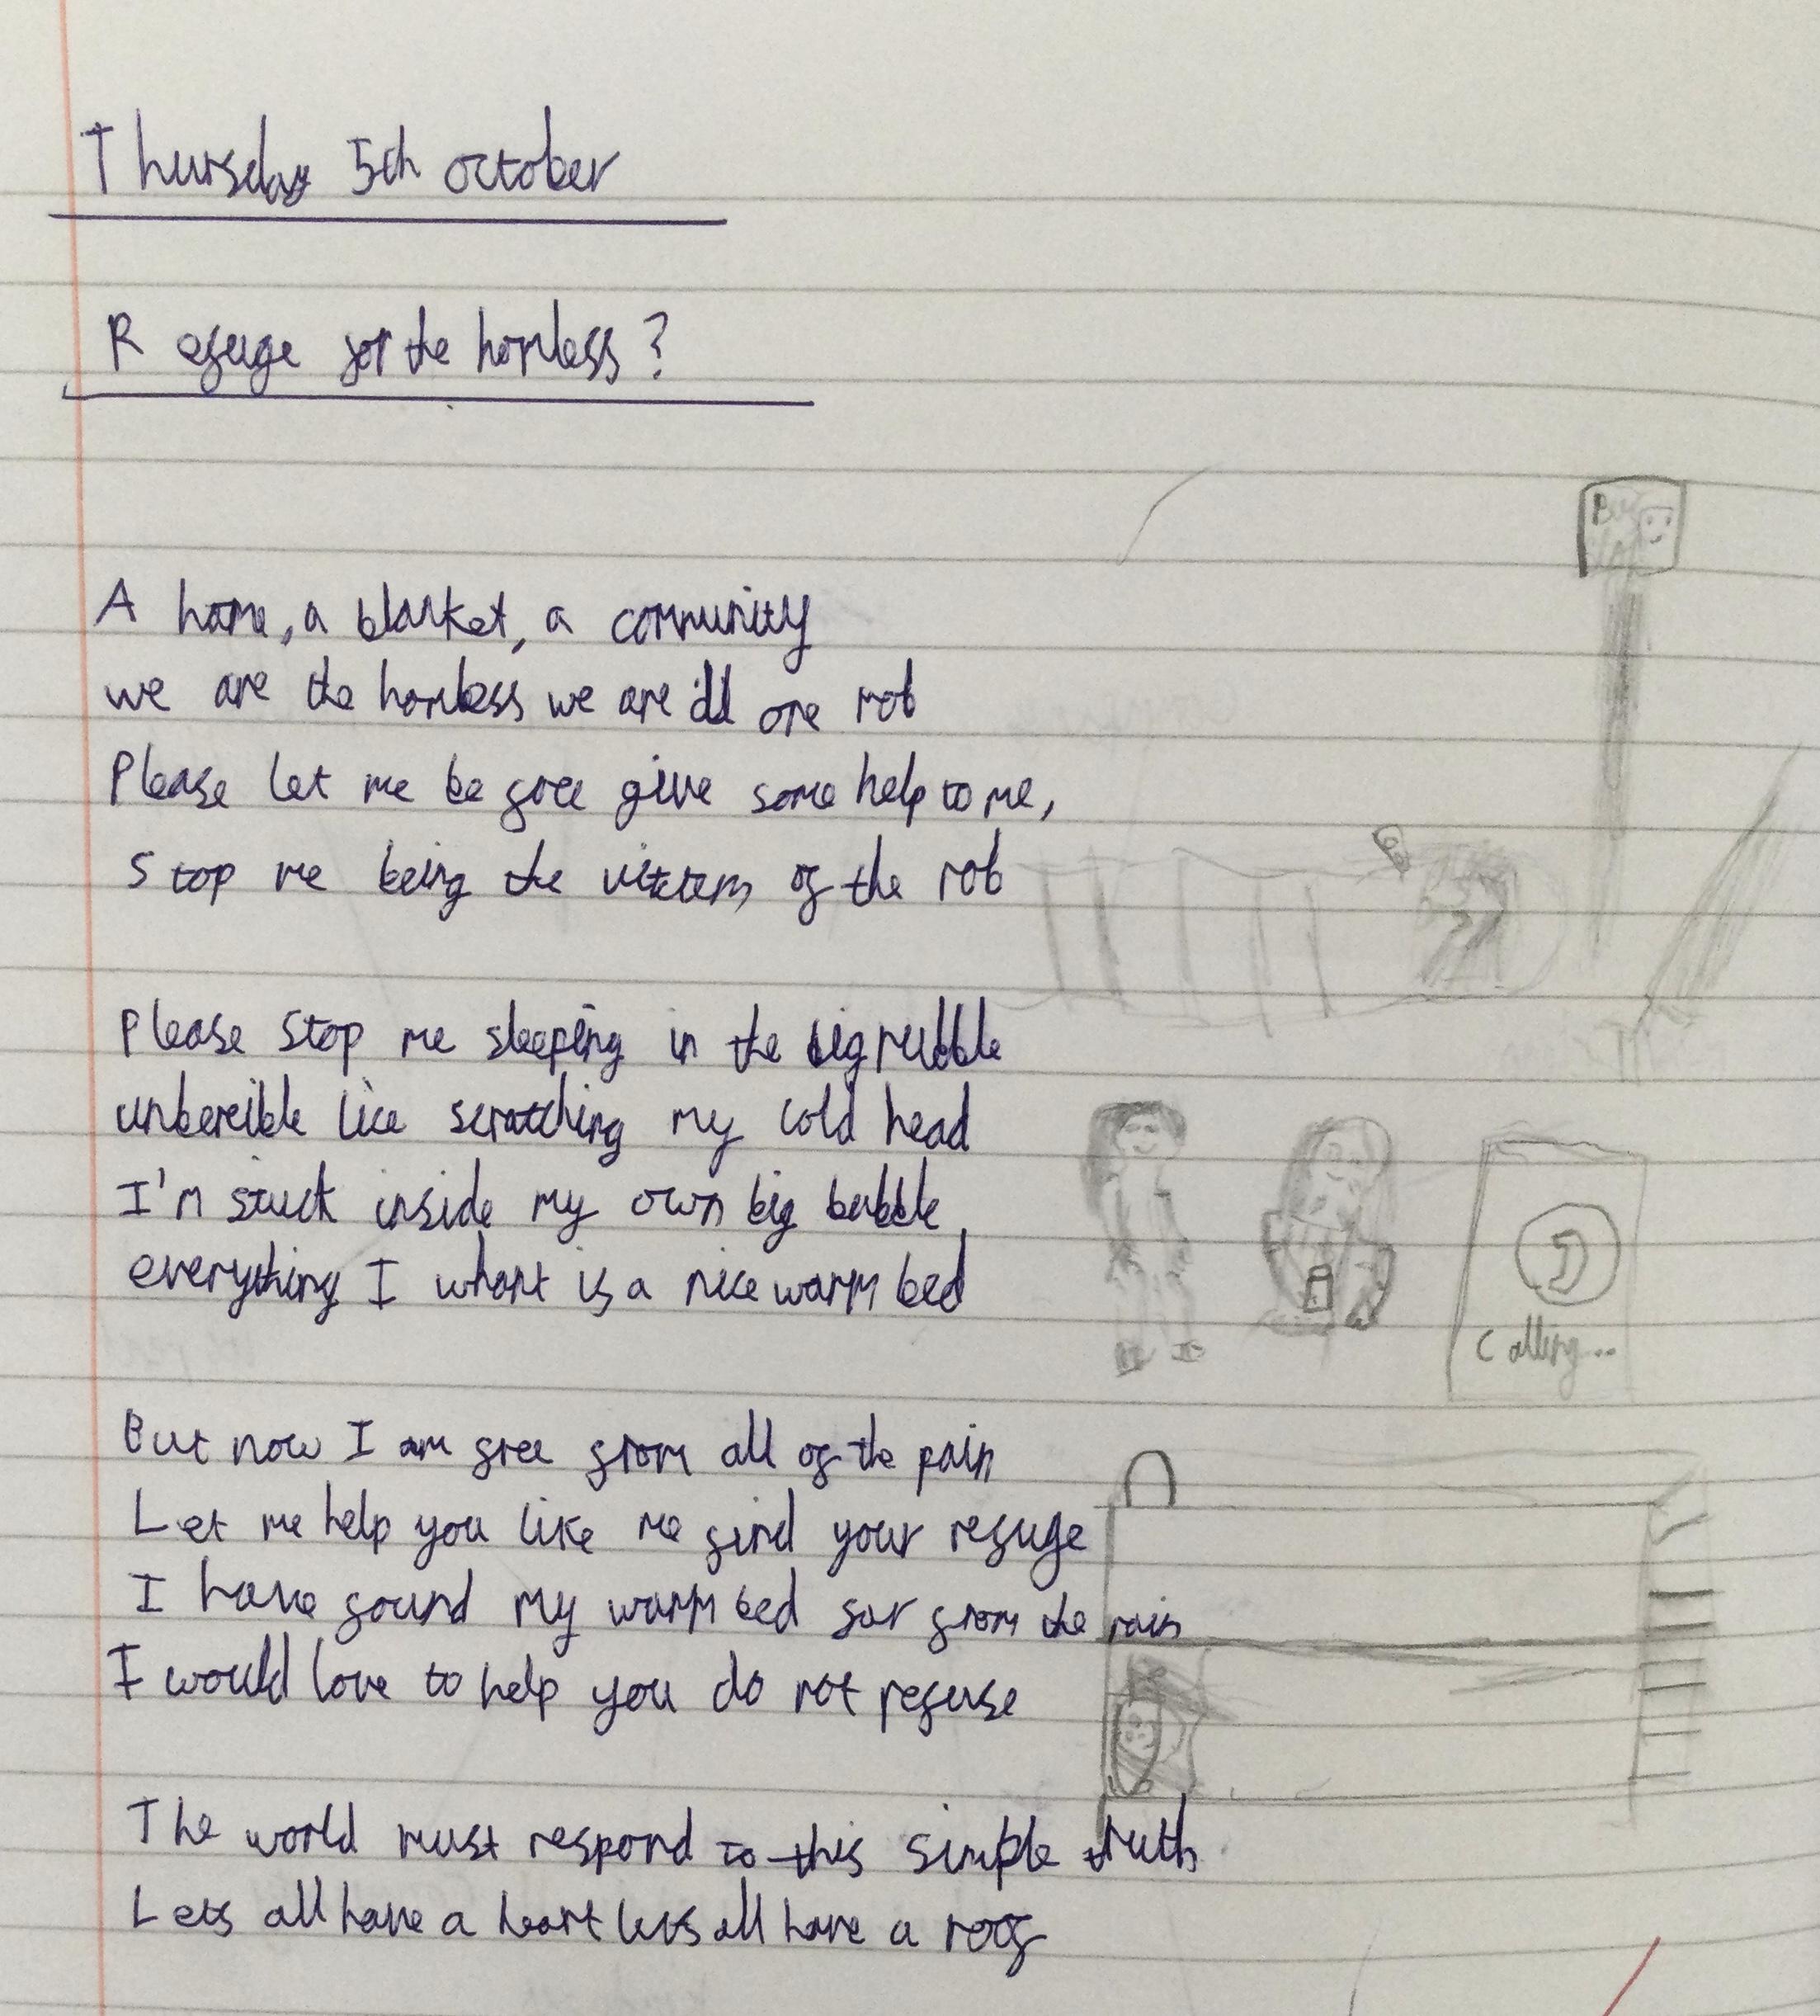 Thursday 5th october
Refuge for the homless?
A home, a blanket, a community
we are the homless we are all one mob
Please let me be free give some help to me,
Stop me being the victem of the rob
Please Stop me sleeping in the big rubble
unbereible lice scratching my cold head
I'm stuck inside my own big bubble
everything I whant is a nice warm bed
Calling...
But now I am free from all of the pain
Let me help you like me find your refuge
I have found my warm bed far from the rain
I would love to help you do not refuse
The world must respond to this simple truth
Lets all have a heart lets all have a roof